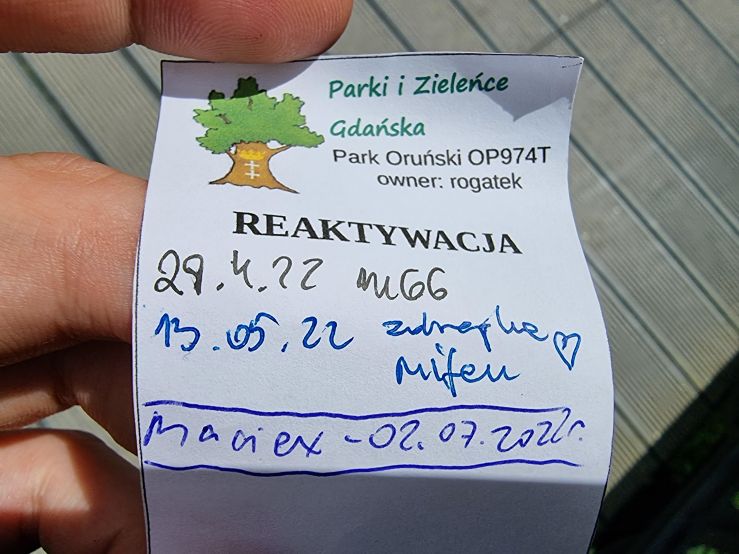 Parki i Zieleńce
Gdańska
Park Oruński OP974T
owner: rogatek
REAKTYWACJA
29.4.22 m66
13.05.22
Mifen
Maciex - 02.07.2022r.